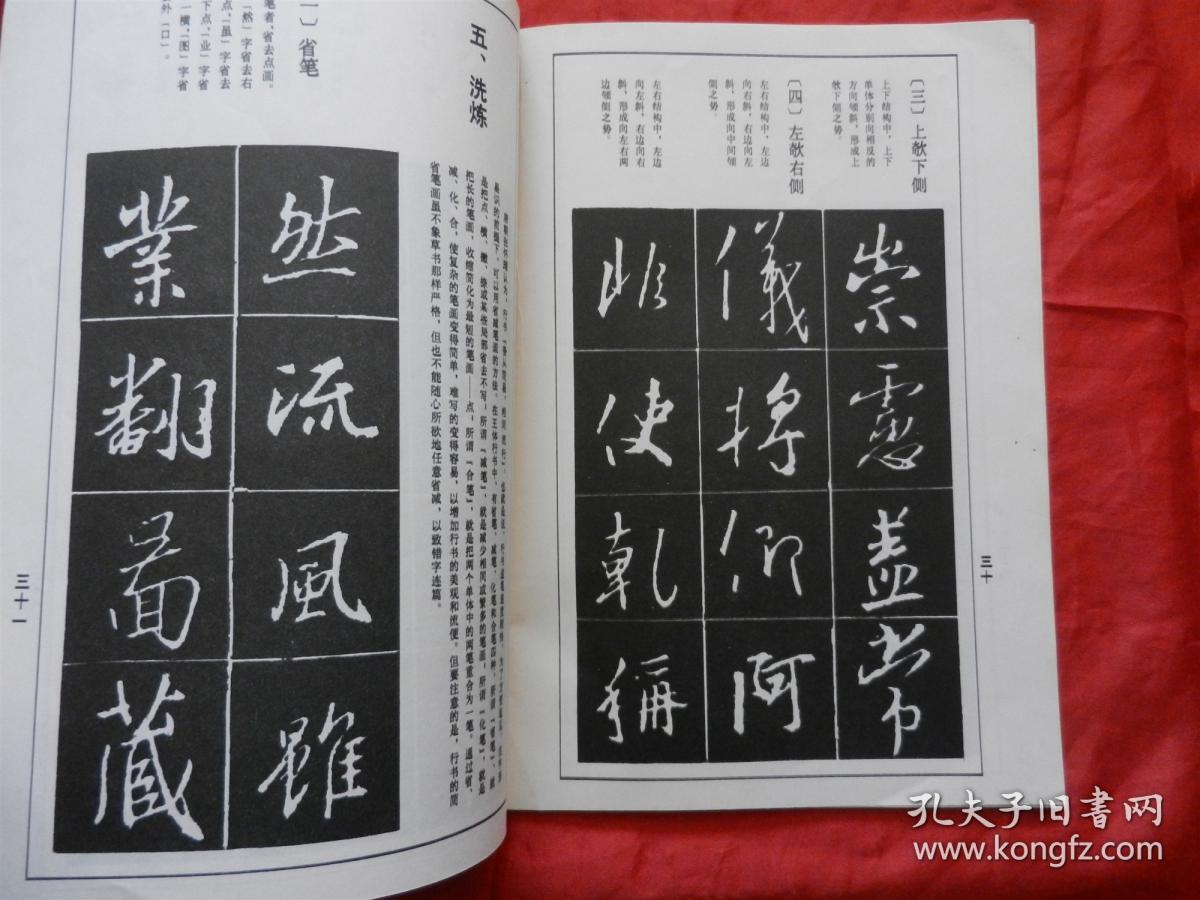 〔三〕上欹下侧
上下结构中，上下
单体分别向相反的
方向倾斜，形成上
欹下侧之势。
〔四〕左欹右侧
左右结构中，左边
向右斜，右边向左
斜，形成向中间倾
侧之势。
左右结构中，左边
向左斜，右边向右
斜，形成向左右两
边倾侧之势。
崇
灵
盖
常
仪
将
仰
阿
非
使
乾
称
三十
五、洗炼
易识的范围下，可以用省减笔画的方法。在王体行书中，有省笔、减笔、化笔和合笔四种。所谓「省笔」，就
是把点、横、撇、捺或某些局部省去不写；所谓「减笔」，就是减少相同或繁多的笔画；所谓「化笔」，就是
把长的笔画，收缩简化为最短的笔画——点；所谓「合笔」，就是把两个单体中的两笔重合为一笔。通过省、
减、化、合，使复杂的笔画变得简单，难写的变得容易，以增加行书的美观和流便。但要注意的是，行书的简
省笔画虽不象草书那样严格，但也不能随心所欲地任意省减，以致错字连篇。
〕省笔
笔者，省去点画。
「然」字省去右
点，「虽」字省去
下点，「业」字省
一横，「图」字省
外「口」。
然
流
風
雖
業
翻
圖
藏
三十一
孔夫子旧书网
www.kongfz.com